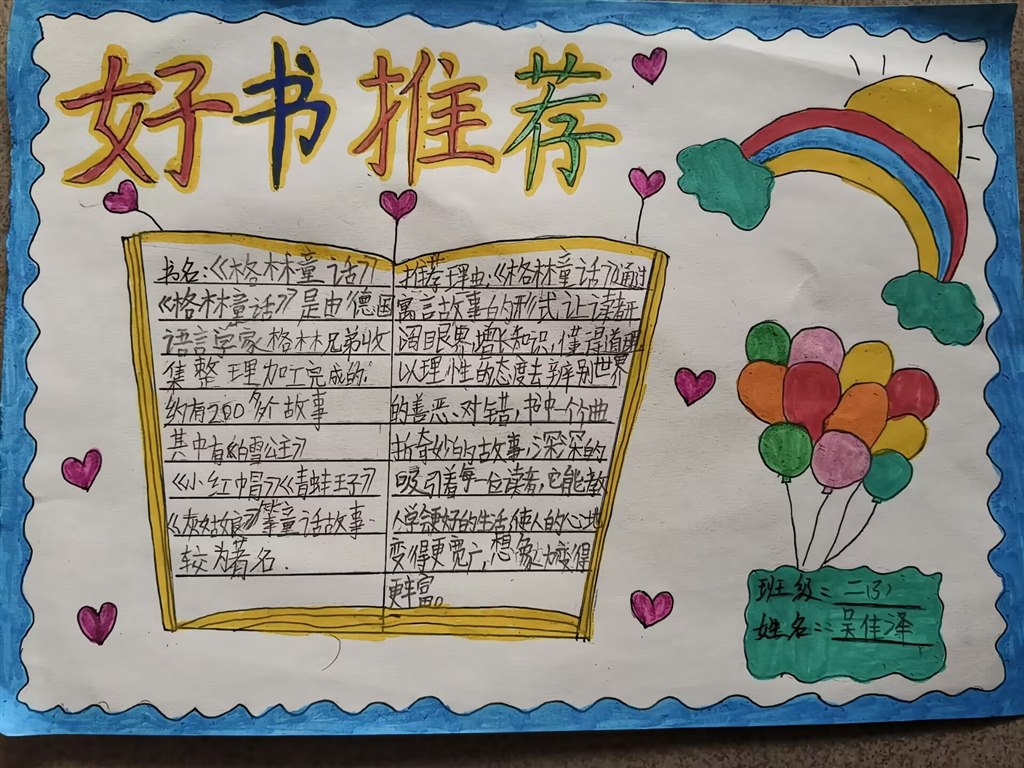 好书推荐
书名:《格林童话》
《格林童话》是由德国
语言学家格林兄弟收
集整理加工完成的.
约有200多个故事
其中有《白雪公主》
《小红帽》《青蛙王子》
《灰姑娘》等童话故事.
较为著名.
推荐理由:《格林童话》通过
寓言故事的形式让读者开
阔眼界,增长知识,懂得道理
以理性的态度去辨别世界
的善恶、对错,书中一个个曲
折奇妙的故事,深深的
吸引着每一位读者,它能教
人学会更好的生活,使人的心地
变得更宽广,想象力变得
更丰富。
班级:二(3)
姓名:吴佳泽